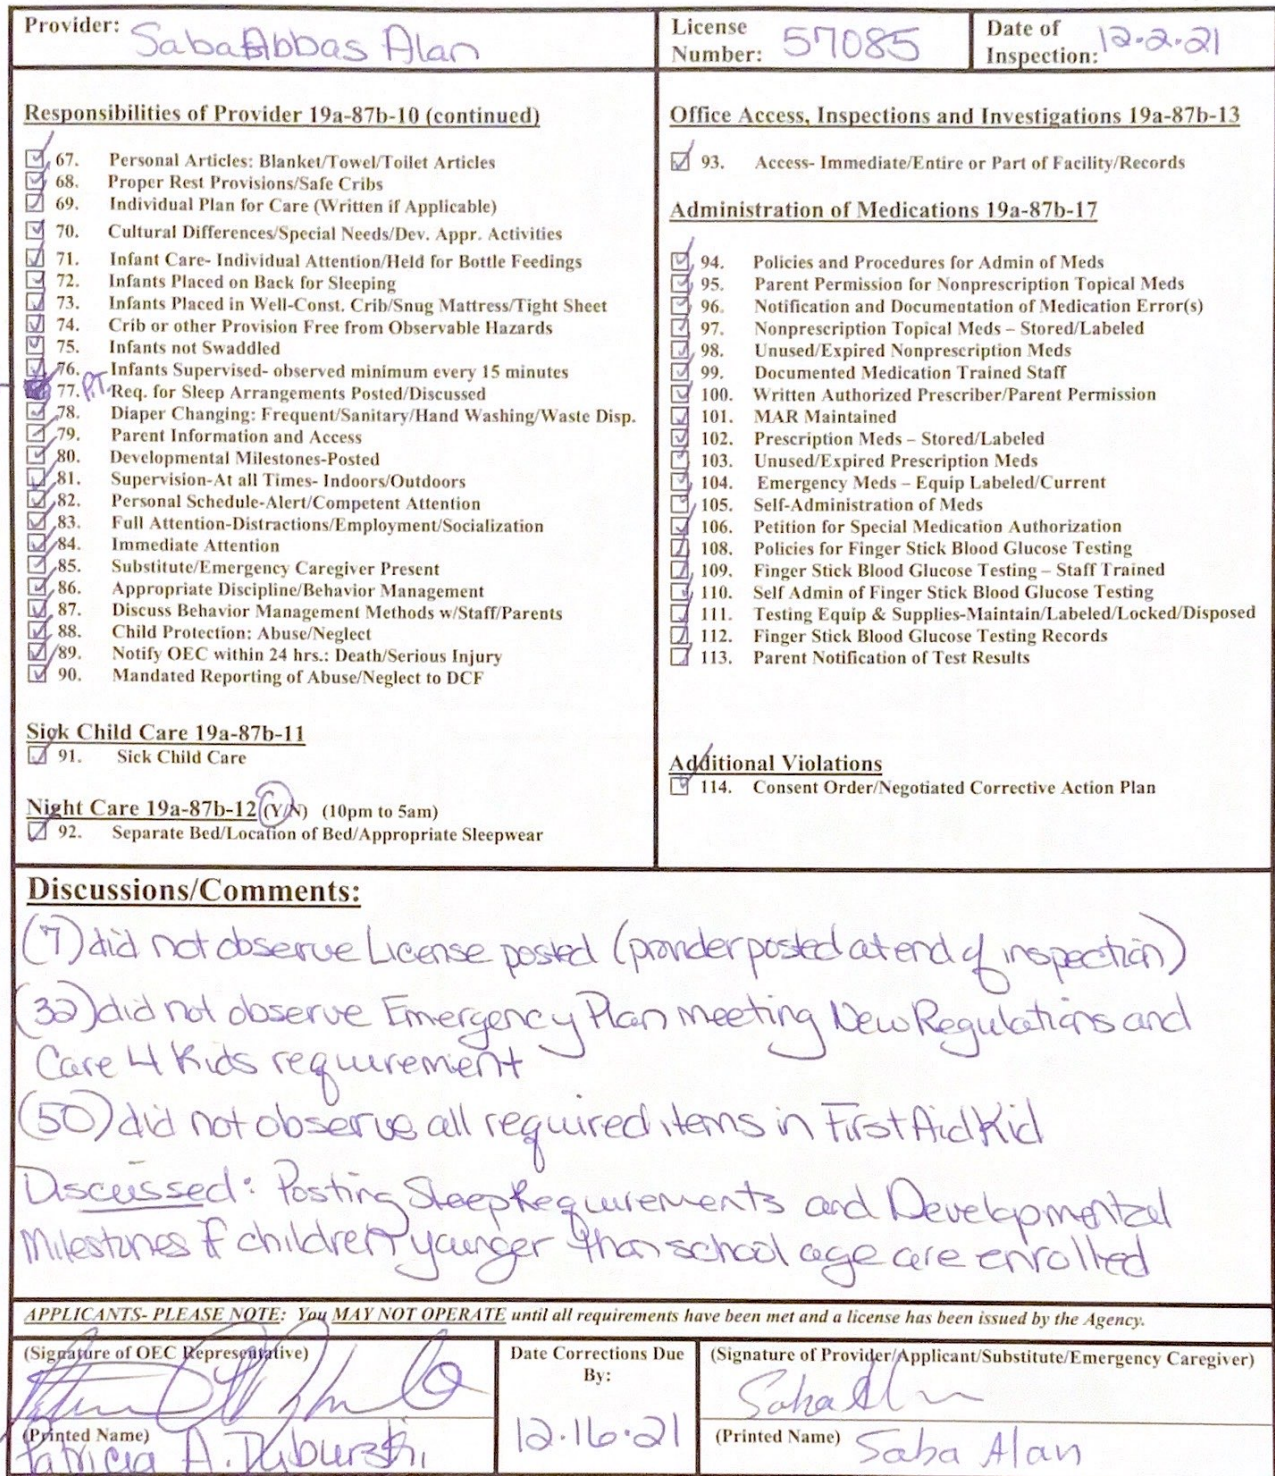 Provider: Saba Abbas Alan
License Number: 57085
Date of Inspection: 12.2.21
Responsibilities of Provider 19a-87b-10 (continued)
67. Personal Articles: Blanket/Towel/Toilet Articles
68. Proper Rest Provisions/Safe Cribs
69. Individual Plan for Care (Written if Applicable)
70. Cultural Differences/Special Needs/Dev. Appr. Activities
71. Infant Care- Individual Attention/Held for Bottle Feedings
72. Infants Placed on Back for Sleeping
73. Infants Placed in Well-Const. Crib/Snug Mattress/Tight Sheet
74. Crib or other Provision Free from Observable Hazards
75. Infants not Swaddled
76. Infants Supervised- observed minimum every 15 minutes
77. P.T. Req. for Sleep Arrangements Posted/Discussed
78. Diaper Changing: Frequent/Sanitary/Hand Washing/Waste Disp.
79. Parent Information and Access
80. Developmental Milestones-Posted
81. Supervision-At all Times- Indoors/Outdoors
82. Personal Schedule-Alert/Competent Attention
83. Full Attention-Distractions/Employment/Socialization
84. Immediate Attention
85. Substitute/Emergency Caregiver Present
86. Appropriate Discipline/Behavior Management
87. Discuss Behavior Management Methods w/Staff/Parents
88. Child Protection: Abuse/Neglect
89. Notify OEC within 24 hrs.: Death/Serious Injury
90. Mandated Reporting of Abuse/Neglect to DCF
Sick Child Care 19a-87b-11
91. Sick Child Care
Night Care 19a-87b-12 (Y/N) (10pm to 5am)
92. Separate Bed/Location of Bed/Appropriate Sleepwear
Office Access, Inspections and Investigations 19a-87b-13
93. Access- Immediate/Entire or Part of Facility/Records
Administration of Medications 19a-87b-17
94. Policies and Procedures for Admin of Meds
95. Parent Permission for Nonprescription Topical Meds
96. Notification and Documentation of Medication Error(s)
97. Nonprescription Topical Meds – Stored/Labeled
98. Unused/Expired Nonprescription Meds
99. Documented Medication Trained Staff
100. Written Authorized Prescriber/Parent Permission
101. MAR Maintained
102. Prescription Meds – Stored/Labeled
103. Unused/Expired Prescription Meds
104. Emergency Meds – Equip Labeled/Current
105. Self-Administration of Meds
106. Petition for Special Medication Authorization
108. Policies for Finger Stick Blood Glucose Testing
109. Finger Stick Blood Glucose Testing – Staff Trained
110. Self Admin of Finger Stick Blood Glucose Testing
111. Testing Equip & Supplies-Maintain/Labeled/Locked/Disposed
112. Finger Stick Blood Glucose Testing Records
113. Parent Notification of Test Results
Additional Violations
114. Consent Order/Negotiated Corrective Action Plan
Discussions/Comments:
(7) did not observe License posted (provider posted at end of inspection)
(32) did not observe Emergency Plan meeting New Regulations and
Care 4 Kids requirement
(50) did not observe all required items in First Aid Kid
Discussed: Posting Sleep Requirements and Developmental
Milestones If children younger than school age are enrolled
APPLICANTS- PLEASE NOTE: You MAY NOT OPERATE until all requirements have been met and a license has been issued by the Agency.
(Signature of OEC Representative)
(Printed Name) Patricia A.
Date Corrections Due
By:
12.16.21
(Signature of Provider/Applicant/Substitute/Emergency Caregiver)
Saba Alan
(Printed Name) Saba Alan